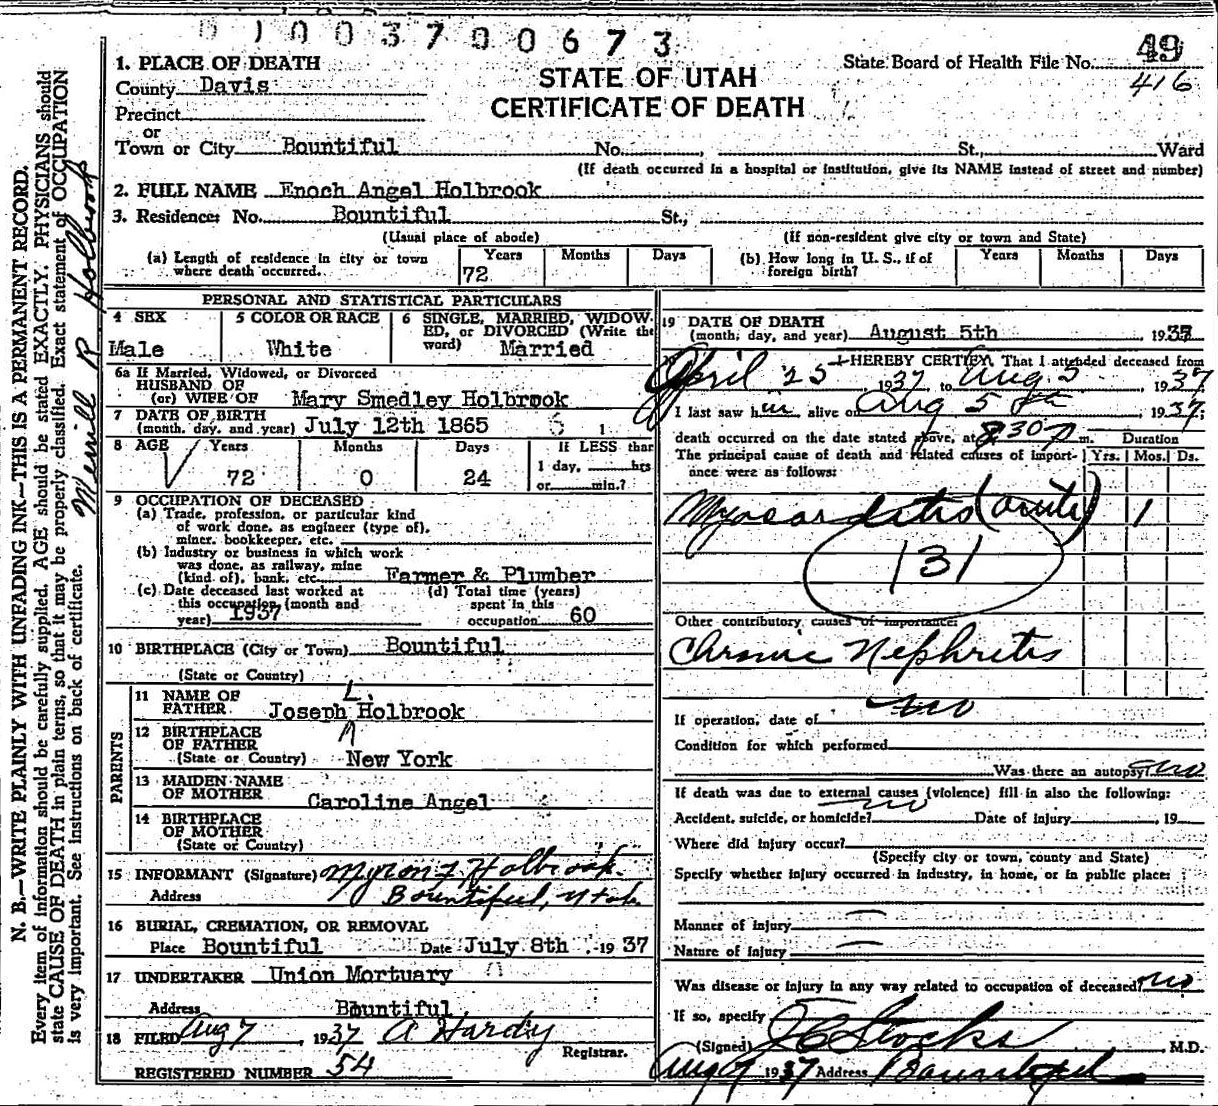 01003700673
1. PLACE OF DEATH
County Davis
Precinct
or
Town or City Bountiful No. , St., Ward
(If death occurred in a hospital or institution, give its NAME instead of street and number)
STATE OF UTAH
CERTIFICATE OF DEATH
State Board of Health File No. 49
416
2. FULL NAME Enoch Angel Holbrook
3. Residence: No. Bountiful St.,
(Usual place of abode) (If non-resident give city or town and State)
(a) Length of residence in city or town where death occurred. Years 72 Months Days
(b) How long in U. S., if of foreign birth? Years Months Days
PERSONAL AND STATISTICAL PARTICULARS
4 SEX Male
5 COLOR OR RACE White
6 SINGLE, MARRIED, WIDOW-
ED, or DIVORCED (Write the
word) Married
6a If Married, Widowed, or Divorced
HUSBAND OF
(or) WIFE OF Mary Smedley Holbrook
7 DATE OF BIRTH
(month, day, and year) July 12th 1865
8 AGE Years 72 Months 0 Days 24 If LESS than
1 day, hrs
or min.?
9 OCCUPATION OF DECEASED
(a) Trade, profession, or particular kind
of work done, as engineer (type of),
miner, bookkeeper, etc.
(b) Industry or business in which work
was done, as railway, mine
(kind of), bank, etc. Farmer & Plumber
(c) Date deceased last worked at
this occupation (month and
year) 1937
(d) Total time (years)
spent in this
occupation 60
10 BIRTHPLACE (City or Town) Bountiful
(State or Country)
PARENTS
11 NAME OF
FATHER Joseph L. Holbrook
12 BIRTHPLACE
OF FATHER
(State or Country) New York
13 MAIDEN NAME
OF MOTHER Caroline Angel
14 BIRTHPLACE
OF MOTHER
(State or Country)
15 INFORMANT (Signature) Myron F. Holbrook
Address Bountiful, Utah
16 BURIAL, CREMATION, OR REMOVAL
Place Bountiful Date July 8th 1937
17 UNDERTAKER Union Mortuary
Address Bountiful
18 FILED Aug 7, 1937 A Hardy
Registrar.
REGISTERED NUMBER 54
19 DATE OF DEATH
(month, day, and year) August 5th 1937
20 I HEREBY CERTIFY, That I attended deceased from
April 25, 1937 to Aug 5, 1937
I last saw him alive on Aug 5th, 1937;
death occurred on the date stated above, at 8 30 p m.
Duration
The principal cause of death and related causes of import-
ance were as follows: Yrs. Mos. Ds.
Myocarditis (acute) 1
131
Other contributory causes of importance:
Chronic Nephritis
If operation, date of no
Condition for which performed
Was there an autopsy? no
If death was due to external causes (violence) fill in also the following:
no
Accident, suicide, or homicide? Date of injury , 19
Where did injury occur?
(Specify city or town, county and State)
Specify whether injury occurred in industry, in home, or in public place:
Manner of injury
Nature of injury
Was disease or injury in any way related to occupation of deceased? no
If so, specify
(Signed) J C Stocks M.D.
Aug 7 1937 Address Bountiful
N. B.—WRITE PLAINLY WITH UNFADING INK—THIS IS A PERMANENT RECORD.
Every item of information should be carefully supplied. AGE should be stated EXACTLY. PHYSICIANS should
state CAUSE OF DEATH in plain terms, so that it may be properly classified. Exact statement of OCCUPATION
is very important. See instructions on back of certificate.
Merrill R Holbrook